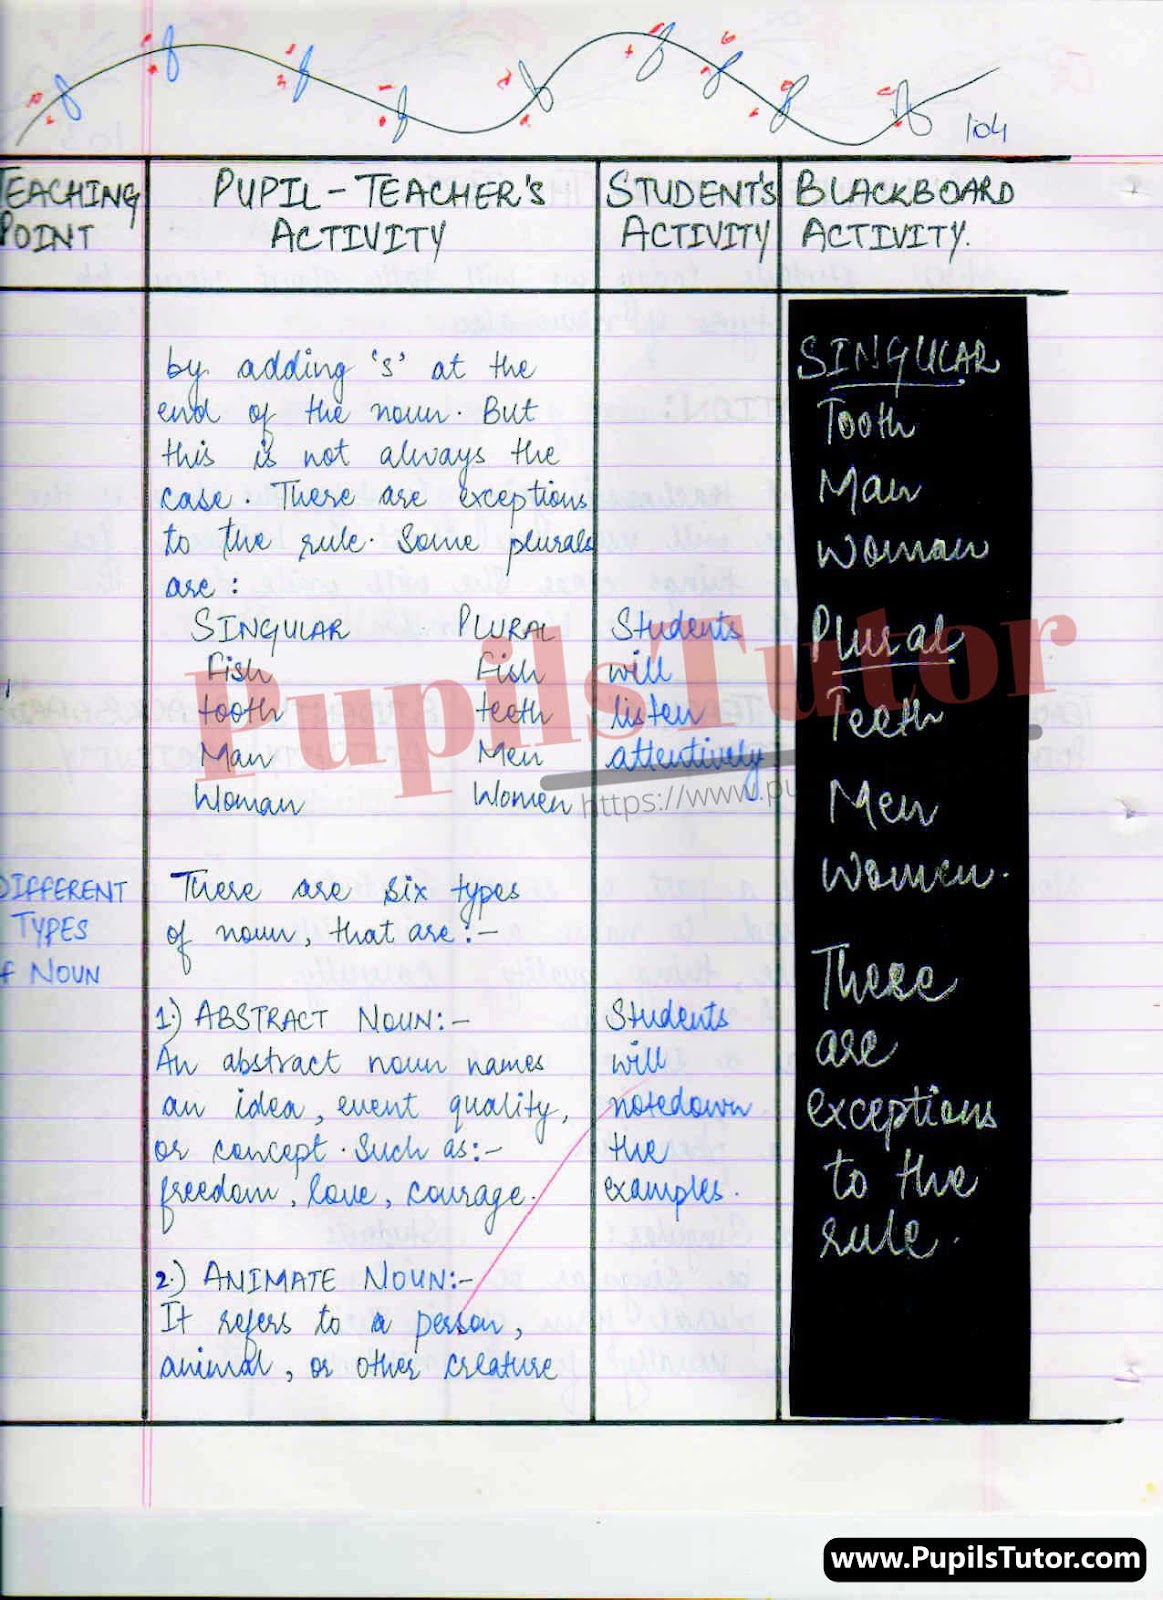 104
TEACHING POINT
PUPIL - TEACHER'S ACTIVITY
STUDENT'S ACTIVITY
BLACKBOARD ACTIVITY.
by adding 's' at the
end of the noun. But
this is not always the
case. There are exceptions
to the rule. Some plurals
are :
SINGULAR PLURAL
Fish Fish
tooth teeth
Man Men
Woman Women
Students
will
listen
attentively
DIFFERENT
TYPES
of NOUN
There are six types
of noun, that are:-
1.) ABSTRACT NOUN:-
An abstract noun names
an idea, event quality,
or concept. Such as:-
freedom, love, courage.
2.) ANIMATE NOUN:-
It refers to a person,
animal, or other creature
Students
will
notedown
the
examples.
SINGULAR
Tooth
Man
Woman
Plural
Teeth
Men
Women.
There
are
exceptions
to the
rule.
PupilsTutor
https://www.pu
www.PupilsTutor.com